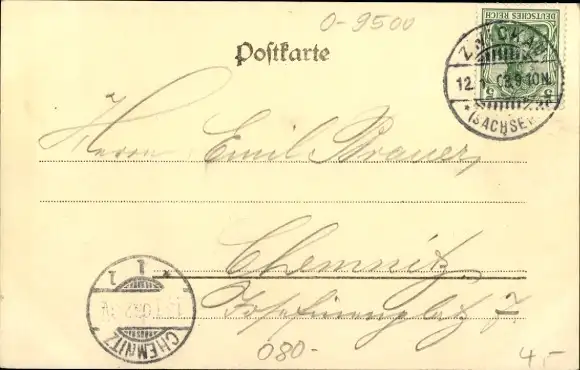 0-9500
DEUTSCHES REICH
5 5
Postkarte
ZWICKAU
12. 03. 9-10N.
*(SACHSEN)
Herrn Emil Brauer,
Chemnitz,
Josefinenplatz 7.
* 1 1
CHEMNITZ
080-
4,-